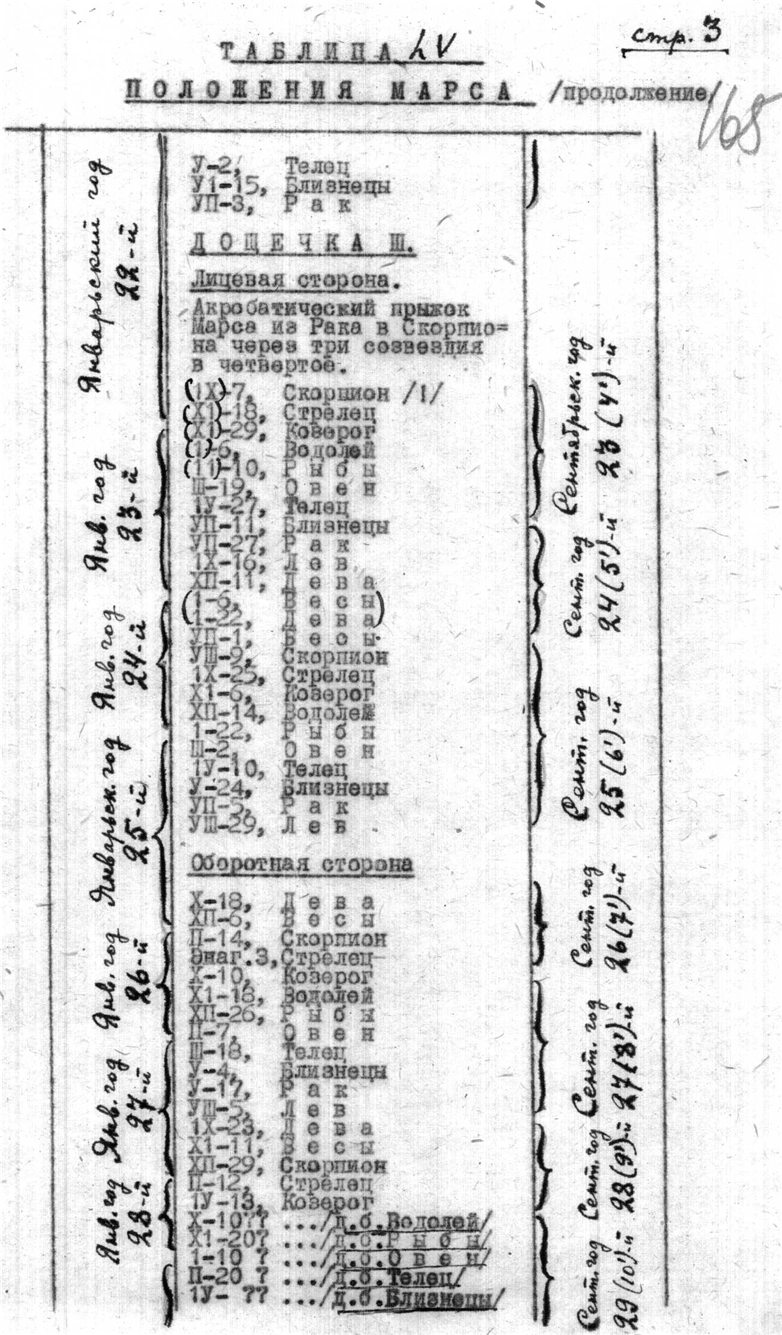 стр. 3
ТАБЛИЦА LV
ПОЛОЖЕНИЯ МАРСА /продолжение/
168
У-2, Телец
У1-15, Близнецы
УП-3, Рак
ДОЩЕЧКА Ш.
Лицевая сторона.
Акробатический прыжок
Марса из Рака в Скорпио=
на через три созвездия
в четвертое.
(1Х)-7, Скорпион /!/
(Х1)-18, Стрелец
(Х1)-29, Козерог
(1)-6, Водолей
(11)-10, Рыбы
Ш-19, Овен
1У-27, Телец
УП-11, Близнецы
УП-27, Рак
1Х-16, Лев
ХП-11, Дева
(1-6, Весы)
(1-22, Дева)
УП-1, Весы
УШ-9, Скорпион
1Х-25, Стрелец
Х1-6, Козерог
ХП-14, Водолей
1-22, Рыбы
Ш-2, Овен
1У-10, Телец
У-24, Близнецы
УП-5, Рак
УШ-29, Лев
Оборотная сторона
Х-18, Дева
ХП-6, Весы
П-14, Скорпион
Энаг.3, Стрелец
Х-10, Козерог
Х1-18, Водолей
ХП-26, Рыбы
П-7, Овен
Ш-18, Телец
У-4, Близнецы
У-17, Рак
УШ-5, Лев
1Х-23, Дева
Х1-11, Весы
ХП-29, Скорпион
П-12, Стрелец
1У-13, Козерог
Х-10?? .../д.б.Водолей/
Х1-20? .../д.б.Рыбы/
1-10 ? .../д.б.Овен/
П-20 ? .../д.б.Телец/
1У- ?? .../д.б.Близнецы/
Январьский год
22-й
Янв. год
23-й
Янв. год
24-й
Январьск. год
25-й
Янв. год
26-й
Янв. год
27-й
Янв. год
28-й
Сентябрьск. год
23 (4')-й
Сент. год
24(5')-й
Сент. год
25(6')-й
Сент. год
26(7')-й
Сент. год
27(8')-й
Сент. год
28(9')-й
Сент. год
29(10')-й